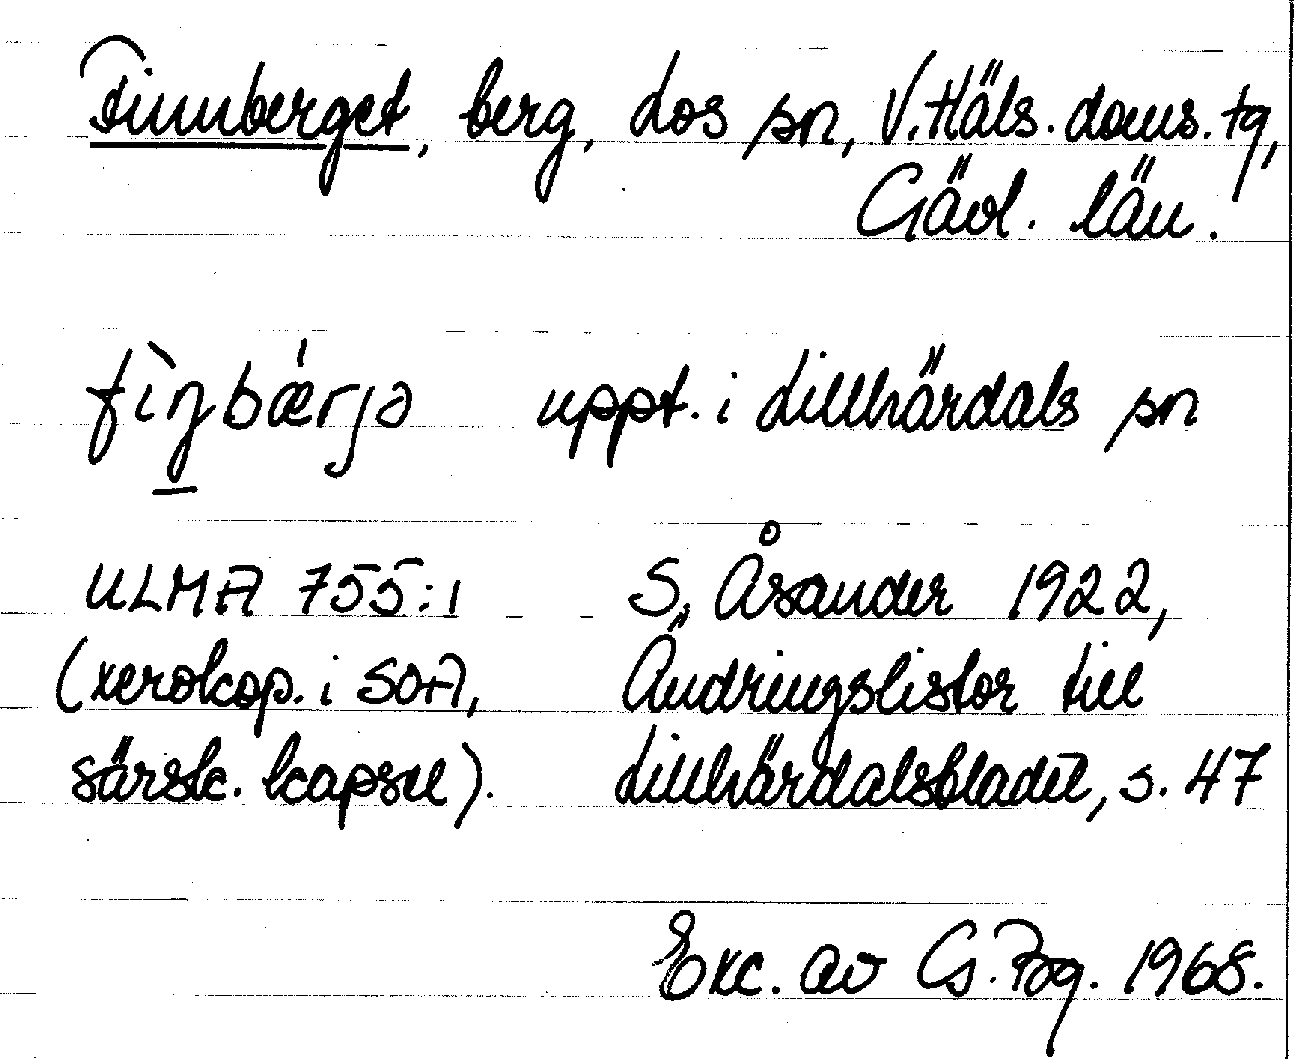 Finnberget, berg, Los sn, V. Häls. doms. tg,
Gävl. län.
fìŋbǽrjə uppt. i Lillhärdals sn
ULMA 755:1 S. Åsander 1922,
(xerokop. i SOA, Ändringslistor till
särsk. kapsel). Lillhärdalsbladet, s. 47
Exc. av G. 1968.